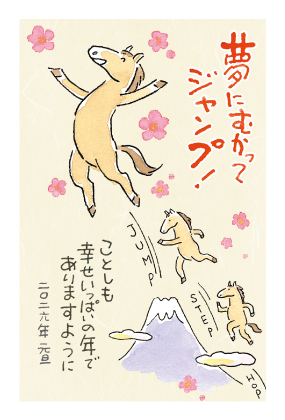 夢にむかって
ジャンプ!
JUMP
STEP
HOP
ことしも
幸せいっぱいの年で
ありますように
二〇二六年 元旦